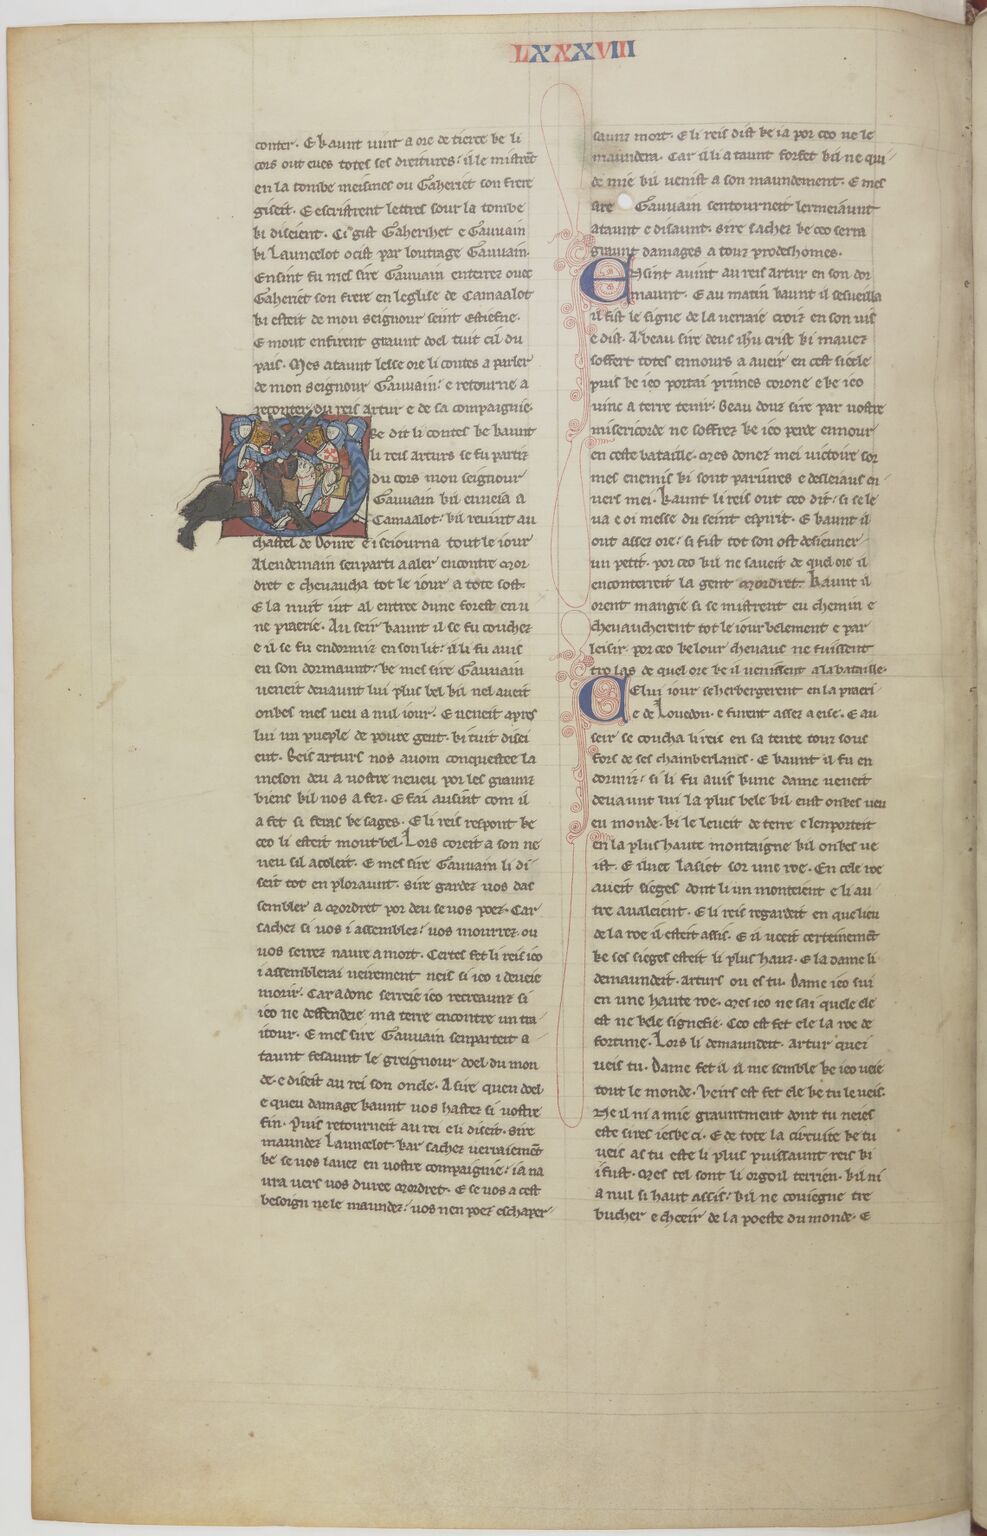 LXXXVIII
conter. E kaunt vint a ore de tierce ke li
cors out eues totes ses dreitures: il le mistrent
en la tombe meismes ou Gaheriet son frere
giseit. E escristrent lettres sour la tombe
ki diseient. Ci gist Gaheriket e Gauvain
ki Launcelot ocist par loutrage Gauvain.
Ensint fu mes sire Gauvain enterrez ovec
Gaheriet son frere en leglise de Camaalot
ki esteit de mon seignour seint Estiefne.
E mout enfirent graunt doel tuit cil du
pais. Mes ataunt lesse ore li contes a parler
de mon seignour Gauvain: e retourne a
reconter du reis Artur e de sa compaignie.
Re dit li contes ke kaunt
li reis Arturs se fu partiz
du cors mon seignour
Gauvain kil enveia a
Camaalot: kil revint au
chastel de Dovre e i seiourna tout le iour
Alendemain senparti a aler encontre Mor
dret e chevaucha tot le iour a tote sost.
E la nuit iut al entree dune forest en u
ne praerie. Au seir kaunt il se fu couchez
e il se fu endormiz en son lit: il li fu avis
en son dormaunt: ke mes sire Gauvain
veneit devaunt lui plus bel kil nel aveit
onkes mes veu a nul iour. E veneit apres
lui un pueple de povre gent. ki tuit disei
ent. Reis arturs nos avom conquestee la
meson deu a vostre neveu por les graunz
biens kil nos a fez. E fai ausint com il
a fet si feras ke sages. E li reis respont ke
ceo li esteit mout bel. Lors coreit a son ne
veu sil acoleit. E mes sire Gauvain li di
seit tot en ploraunt. Sire gardez vos das
sembler a Mordret por deu se vos poez. Car
sachez si vos i assemblez: vos mourrez. ou
vos serrez navre a mort. Certes fet li reis ieo
i assemblerai veirement neis si ieo i deveie
morir. Car adonc serreie ieo recreaunz si
ieo ne deffendeie ma terre encontre un tra
itour. E mes sire Gauvain senparteit a
taunt fesaunt le greignour doel du mon
de. e diseit au rei son oncle. A sire queu doel
e queu damage kaunt vos hastez si vostre
fin. Puis retourneit au rei e li diseit. Sire
maundez Launcelot. kar sachez verraiement
ke se vos lavez en vostre compaignie: ia na
vra vers vos duree Mordret. E se vos a cest
besoign ne le maundez: vos nen poez eschaper
saunz mort. E li reis dist ke ia por ceo ne le
maundera. Car il li a taunt forfet kil ne qui
de mie kil venist a son maundement. E mes
sire Gauvain sentourneit lermeiaunt
ataunt e disaunt. Sire sachez ke ceo serra
graunt damages a touz prodeshomes.
Ensint avint au reis Artur en son dor
maunt. E au matin kaunt il sesueilla
il fist le signe de la verraie croiz en son vis
e dist. A beau sire deus ihu crist ki mavez
soffert totes ennours a aveir en cest siecle
puis ke ieo portai primes corone e ke ieo
vinc a terre tenir. Beau douz sire par vostre
misericorde ne soffrez ke ieo perde ennour
en ceste bataille. Mes donez mei victoire sor
mes enemis ki sont parjures e desleiaus en
vers mei. Kaunt li reis out ceo dit: si se le
va e oi messe du seint espirit. E kaunt il
out assez ore: si fist tot son ost desieuner
un petit. por ceo kil ne saveit de quel ore il
enconterreit la gent Mordret. Kaunt il
orent mangie si se mistrent eu chemin e
chevaucherent tot le iour belement e par
leisir. por ceo ke lour chevaus ne fuissent
tro las de quel ore ke il venissent a la bataille.
Celui iour se herbergerent en la praeri
e de Lovedon. e furent assez a eise. E au
seir se coucha li reis en sa tente touz sous
fors de ses chamberlancs. E kaunt il fu en
dormiz: si li fu avis kune dame veneit
devaunt lui la plus bele kil eust onkes veu
eu monde. ki le leveit de terre e lenporteit
en la plus haute montaigne kil onkes ve
ist. E iluec lasiet sor une roe. En cele roe
aveit sieges dont li un monteient e li au
tre avaleient. E li reis regardeit en que lieu
de la roe il esteit assis. E il veeit certeinement
ke ses sieges esteit li plus hauz. E la dame li
demaundeit. Arturs ou es tu. Dame ieo sui
en une haute roe. Mes ieo ne sai quele ele
est ne kele signefie. Ceo est fet ele la roe de
fortune. Lors li demaundeit. Artur quei
veis tu. Dame fet il il me semble ke ieo veie
tout le monde. Veirs est fet ele ke tu le veis.
Ne il ni a mie grauntment dont tu neies
este sires ieske ci. E de tote la circuite ke tu
veis as tu este li plus puissaunt reis ki
i fust. Mes tel sont li orgoil terrien. kil ni
a nul si haut assis: kil ne coviegne tre
bucher e cheeir de la poeste du monde. E